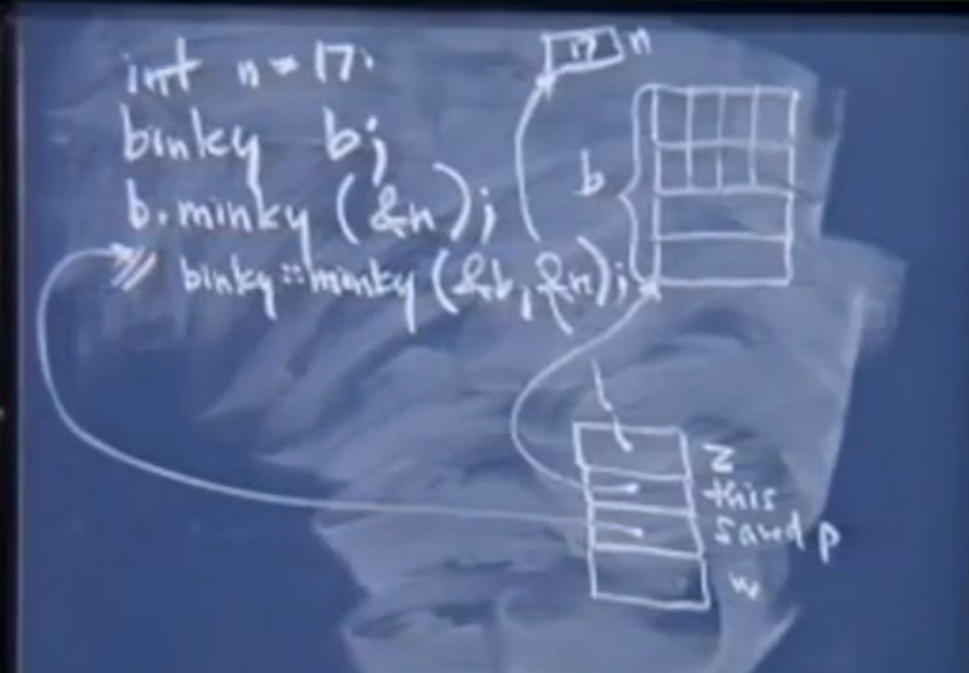 int n = 17;
binky b;
b.minky (&n);
// binky::minky (&b, &n);
17 n
b
z
this
saved p
w